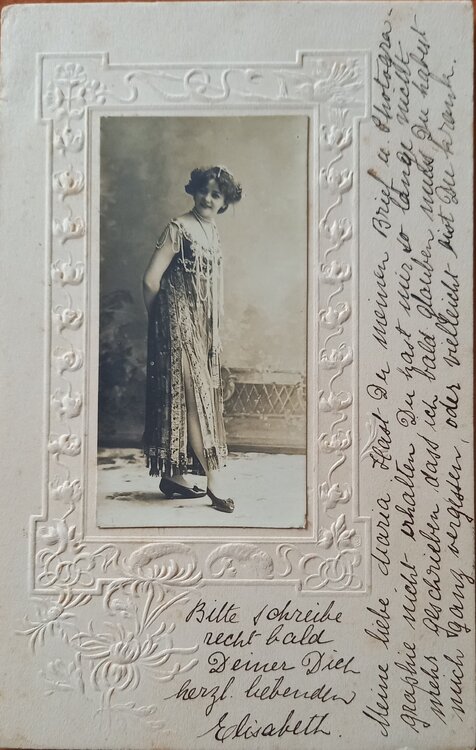 Meine liebe Maria Hast Du meinen Brief u Photogra-
graphie nicht erhalten Du hast mir so lange nicht
mehr geschrieben dass ich bald glauben muss Du habest
mich ganz vergessen, oder vielleicht bist Du krank.
Bitte schreibe
recht bald
Deiner Dich
herzl. liebenden
Elisabeth.